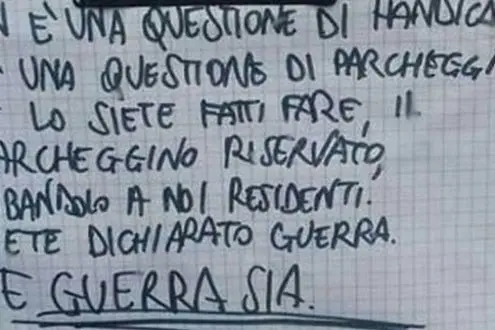 N E' UNA QUESTIONE DI HANDICA
UNA QUESTIONE DI PARCHEGGI
LO SIETE FATTI FARE, IL
ARCHEGGINO RISERVATO,
BANDOLO A NOI RESIDENTI.
ETE DICHIARATO GUERRA.
E GUERRA SIA.